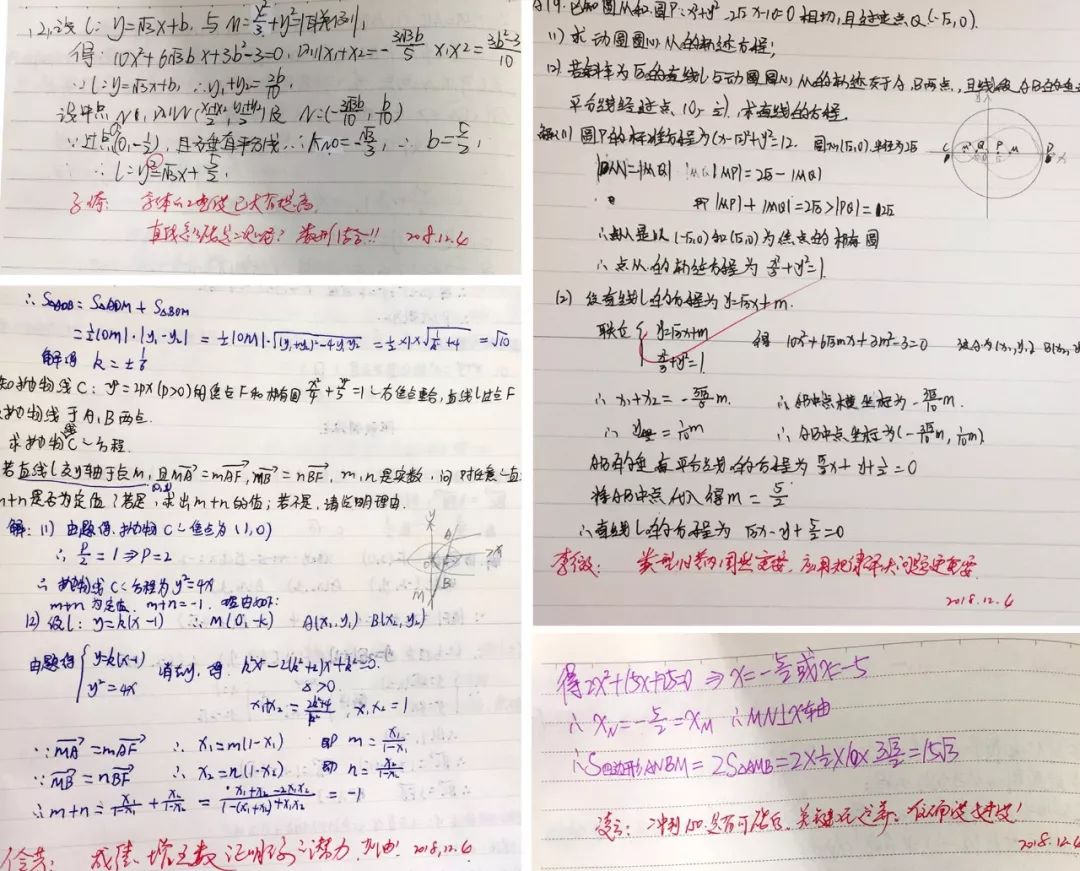 (2)设l: y=√3x+b, 与M: x²/3+y²=1联列,
得: 10x²+6√3bx+3b²-3=0, 则x₁+x₂=-3√3b/5 x₁x₂=3b²-3/10
∵l: y=√3x+b, ∴y₁+y₂=2b/10
设中点N, 则N(x₁+x₂/2, y₁+y₂/2)及N=(-3√3b/10, b/10)
∵过点(0,-1/2), 且为垂直平分线∴k=-√3/3, ∴b=5/2,
∴l: y=√3x+5/2.
字体和速度已大有提高,
数形结合!! 2018.12.6
∴S△AOB=S△AOM+S△BOM
=1/2|OM|·|y₁-y₂|=1/2|OM|·√(y₁+y₂)²-4y₁y₂=1/2×1×√1/k²+4=√10
解得 k=±1/6
知抛物线C: y²=2px(p>0)的焦点F和椭圆x²/4+y²/3=1的右焦点重合, 直线l过点F
抛物线于A,B两点.
求抛物线C的方程.
若直线l交y轴于点M, 且MA=mAF, MB=nBF, m,n是实数, 问对任意的直
m+n是否为定值?若是, 求出m+n的值; 若不是, 请说明理由.
解: (1) 由题得, 抛物线C的焦点为(1,0)
∴p/2=1⇒p=2
∴抛物线C的方程为y²=4x
m+n为定值, m+n=-1. 理由如下:
(2) 设l: y=k(x-1) ∴M(0,-k) A(x₁,y₁) B(x₂,y₂)
由题得{y=k(x-1)
y²=4x 消去y, 得: k²x²-2(k²+2)x+k²=0.
△>0
x₁+x₂=2k²+4/k², x₁x₂=1
∵MA=mAF ∴x₁=m(1-x₁) 即m=x₁/1-x₁
∵MB=nBF ∴x₂=n(1-x₂) 即n=x₂/1-x₂
∴m+n=x₁/1-x₁+x₂/1-x₂=x₁+x₂-2x₁x₂/1-(x₁+x₂)+x₁x₂=-1
成绩 证明 潜力 2018.12.6
19. 已知圆M和圆P: x²+y²-2√2x-10=0相切, 且过定点Q(-√2,0).
(1) 求动圆圆心M的轨迹方程;
(2) 若斜率为√3的直线l与动圆圆心M的轨迹交于A,B两点, 且线段AB的垂
平分线经过点(0,-1/2), 求直线的方程.
解(1) 圆P的标准方程为(x-√2)²+y²=12. 圆心(√2,0), 半径为2√3
|MP|=2√3-|MQ|
即|MP|+|MQ|=2√3>|PQ|=2√2
∴点M是以(-√2,0)和(√2,0)为焦点的椭圆
∴点M的轨迹方程为x²/3+y²=1
(2) 设直线l的方程为y=√3x+m.
联立{y=√3x+m
x²/3+y²=1 得 10x²+6√3mx+3m²-3=0 设A为(x₁,y₁) B(x₂,y₂
∴x₁+x₂=-3√3/5m. ∴AB中点横坐标为-3√3/10m.
∴y=1/10m ∴AB中点坐标为(-3√3/10m, 1/10m)
AB的垂直平分线的方程为√3/3x+y+1/2=0
将AB中点代入得m=5/2
∴直线l的方程为√3x-y+5/2=0
类型归类固然重要, 应用规律解决问题更重要
2018.12.6
得2x²+15x+25=0⇒x=-5/2或x=-5
∴x_N=-5/2=x_M ∴MN⊥x轴
∴S四边形ANBM=2S△AMB=2×1/2×10×3√3/2=15√3
冲刺 是否可
2018.12.6